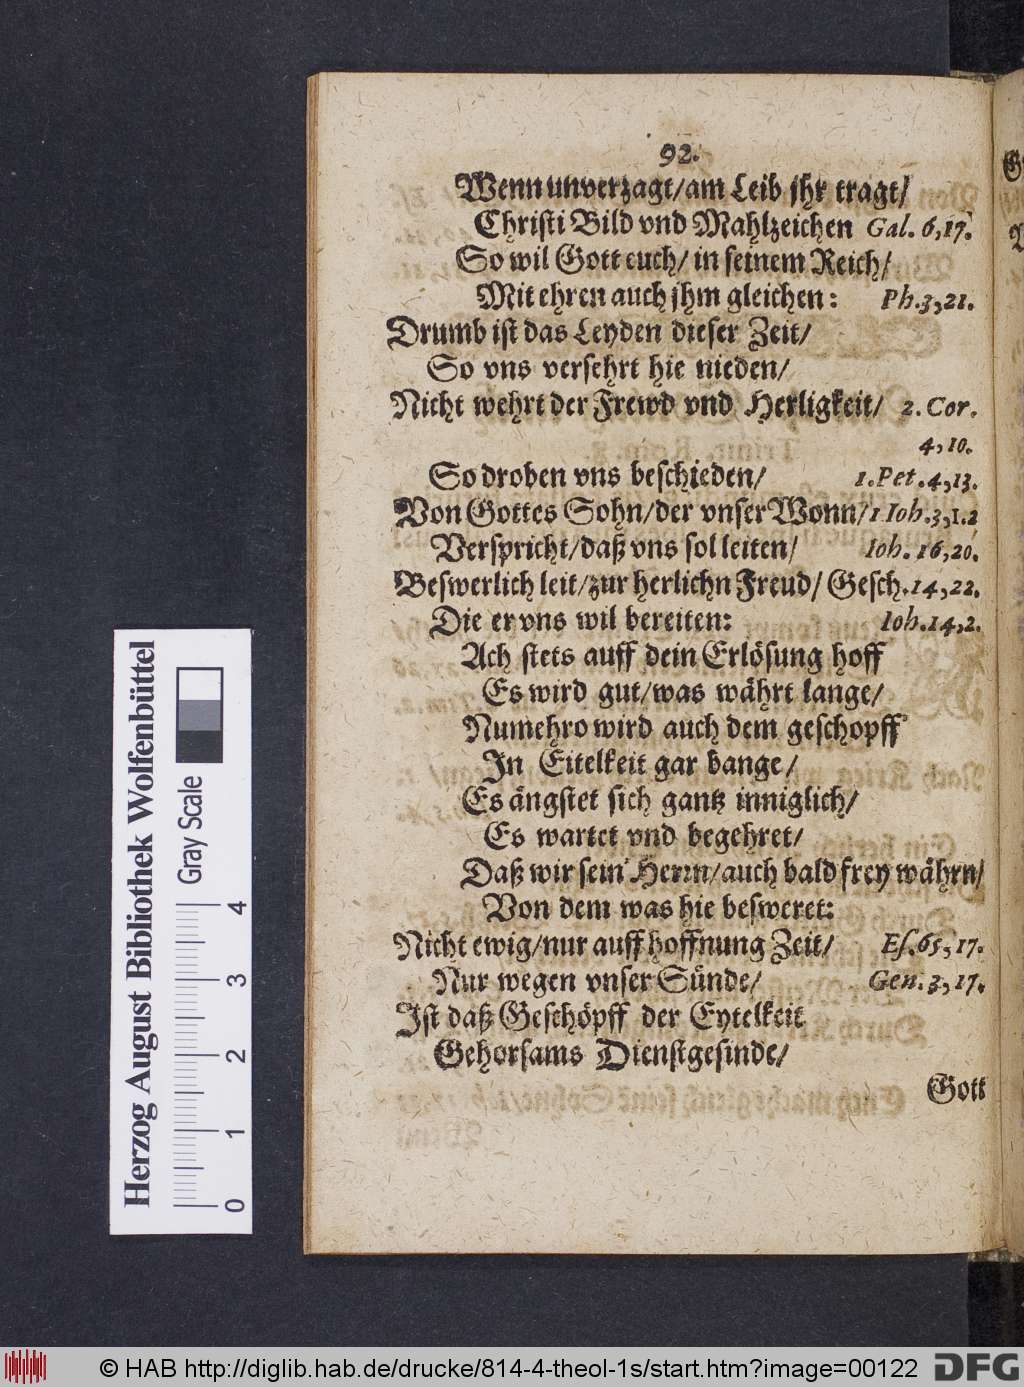 92.
Wenn unverzagt/am Leib jhr tragt/
Christi Bild vnd Mahlzeichen Gal. 6,17.
So wil Gott euch/ in seinem Reich/
Mit ehren auch jhm gleichen: Ph.3,21.
Drumb ist das Leyden dieser Zeit/
So vns versehrt hie nieden/
Nicht wehrt der Frewd vnd Herligkeit/ 2. Cor.
4,10.
So droben vns beschieden/ 1.Pet.4,13.
Von Gottes Sohn/der vnser Wonn/1 Ioh.3,1.2
Verspricht/daß vns sol leiten/ Ioh. 16,20.
Beswerlich leit/zur herlichn Freud/ Gesch.14,22.
Die er vns wil bereiten: Ioh.14,2.
Ach stets auff dein Erlösung hoff
Es wird gut/was währt lange/
Numehro wird auch dem geschopff
In Eitelkeit gar bange/
Es ängstet sich gantz inniglich/
Es wartet vnd begehret/
Daß wir sein Herrn/auch bald frey währn/
Von dem was hie besweret:
Nicht ewig/nur auff hoffnung Zeit/ Es.65,17.
Nur wegen vnser Sünde/ Gen.3,17.
Ist daß Geschöpff der Eytelkeit
Gehorsams Dienstgesinde/
Gott
Herzog August Bibliothek Wolfenbüttel
Gray Scale
0 1 2 3 4
© HAB http://diglib.hab.de/drucke/814-4-theol-1s/start.htm?image=00122
DFG